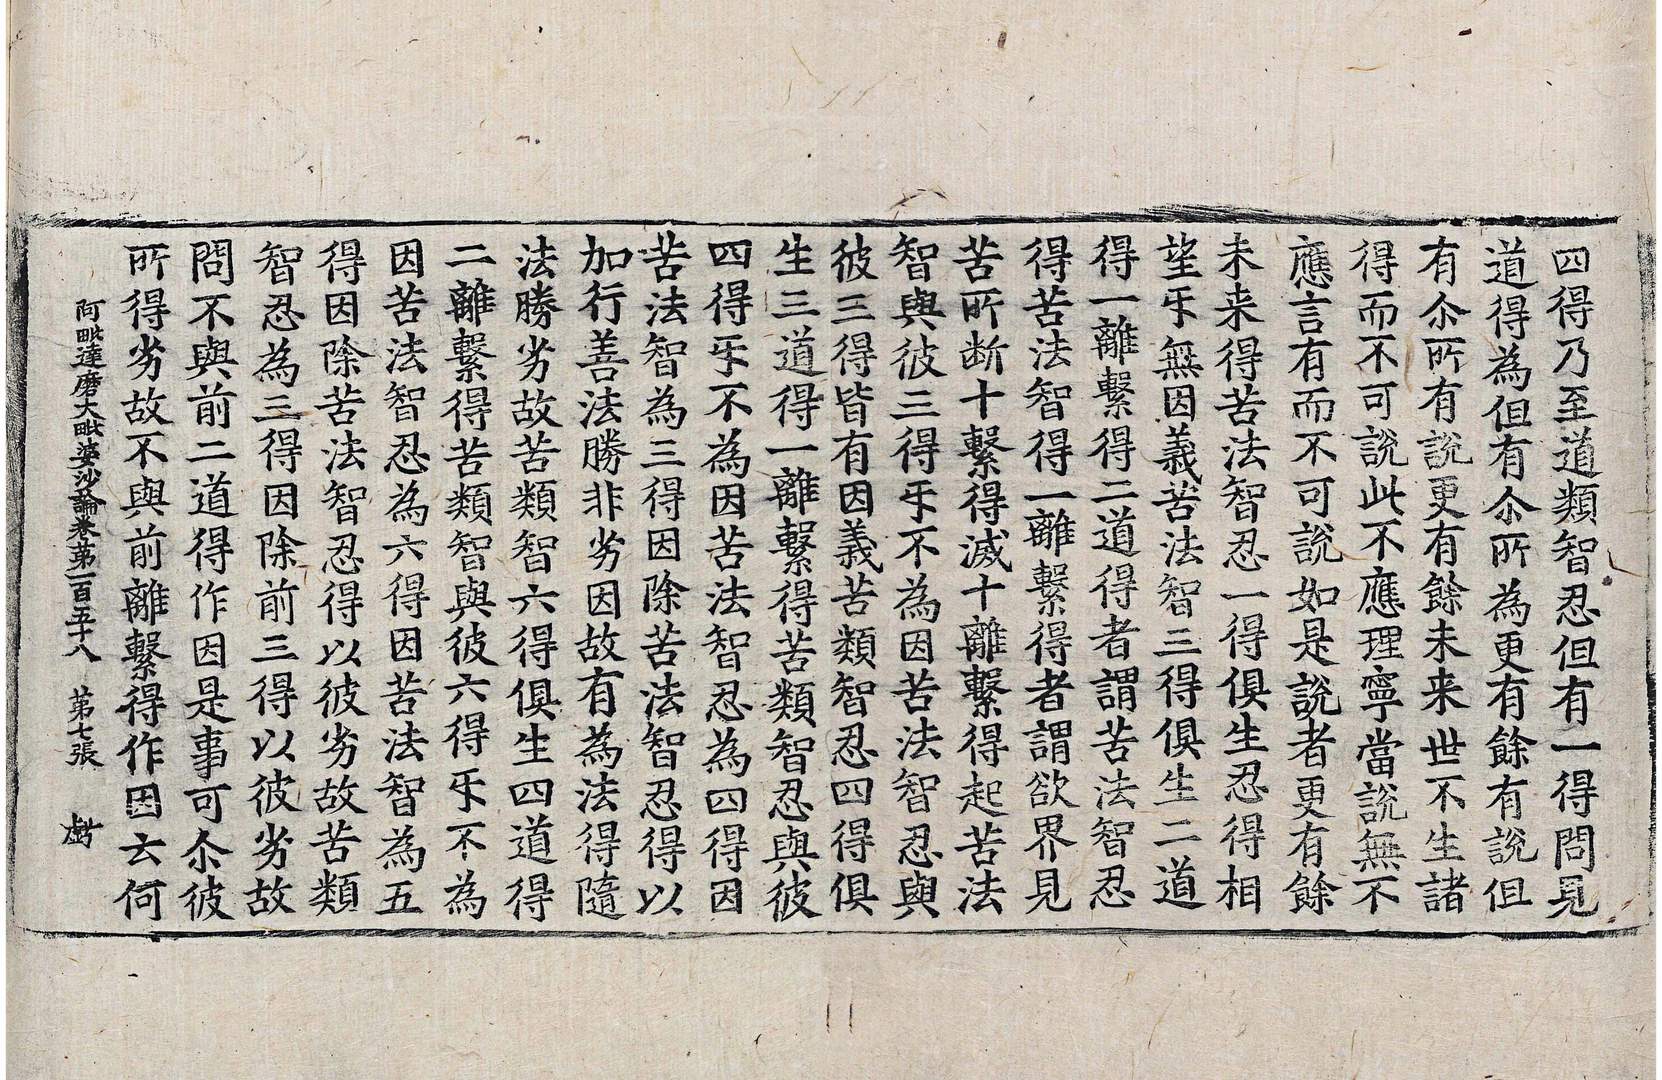 四得乃至道類智忍但有一得問見
道得為但有尒所為更有餘有說但
有尒所有說更有餘未來世不生諸
得而不可說此不應理寧當說無不
應言有而不可說如是說者更有餘
未来得苦法智忍一得俱生忍得相
望乑無因義苦法智三得俱生二道
得一離繫得二道得者謂苦法智忍
得苦法智得一離繫得者謂欲界見
苦所断十繫得滅十離繫得起苦法
智與彼三得乑不為因苦法智忍與
彼三得皆有因義苦類智忍四得俱
生三道得一離繫得苦類智忍與彼
四得乑不為因苦法智忍為四得因
苦法智為三得因除苦法智忍得以
加行善法勝非劣因故有為法得隨
法勝劣故苦類智六得俱生四道得
二離繫得苦類智與彼六得乑不為
因苦法智忍為六得因苦法智為五
得因除苦法智忍得以彼劣故苦類
智忍為三得因除前三得以彼劣故
問不與前二道得作因是事可尒彼
所得劣故不與前離繫得作因云何
阿毗達磨大毗婆沙論卷第一百五十八 第七張 𡻕